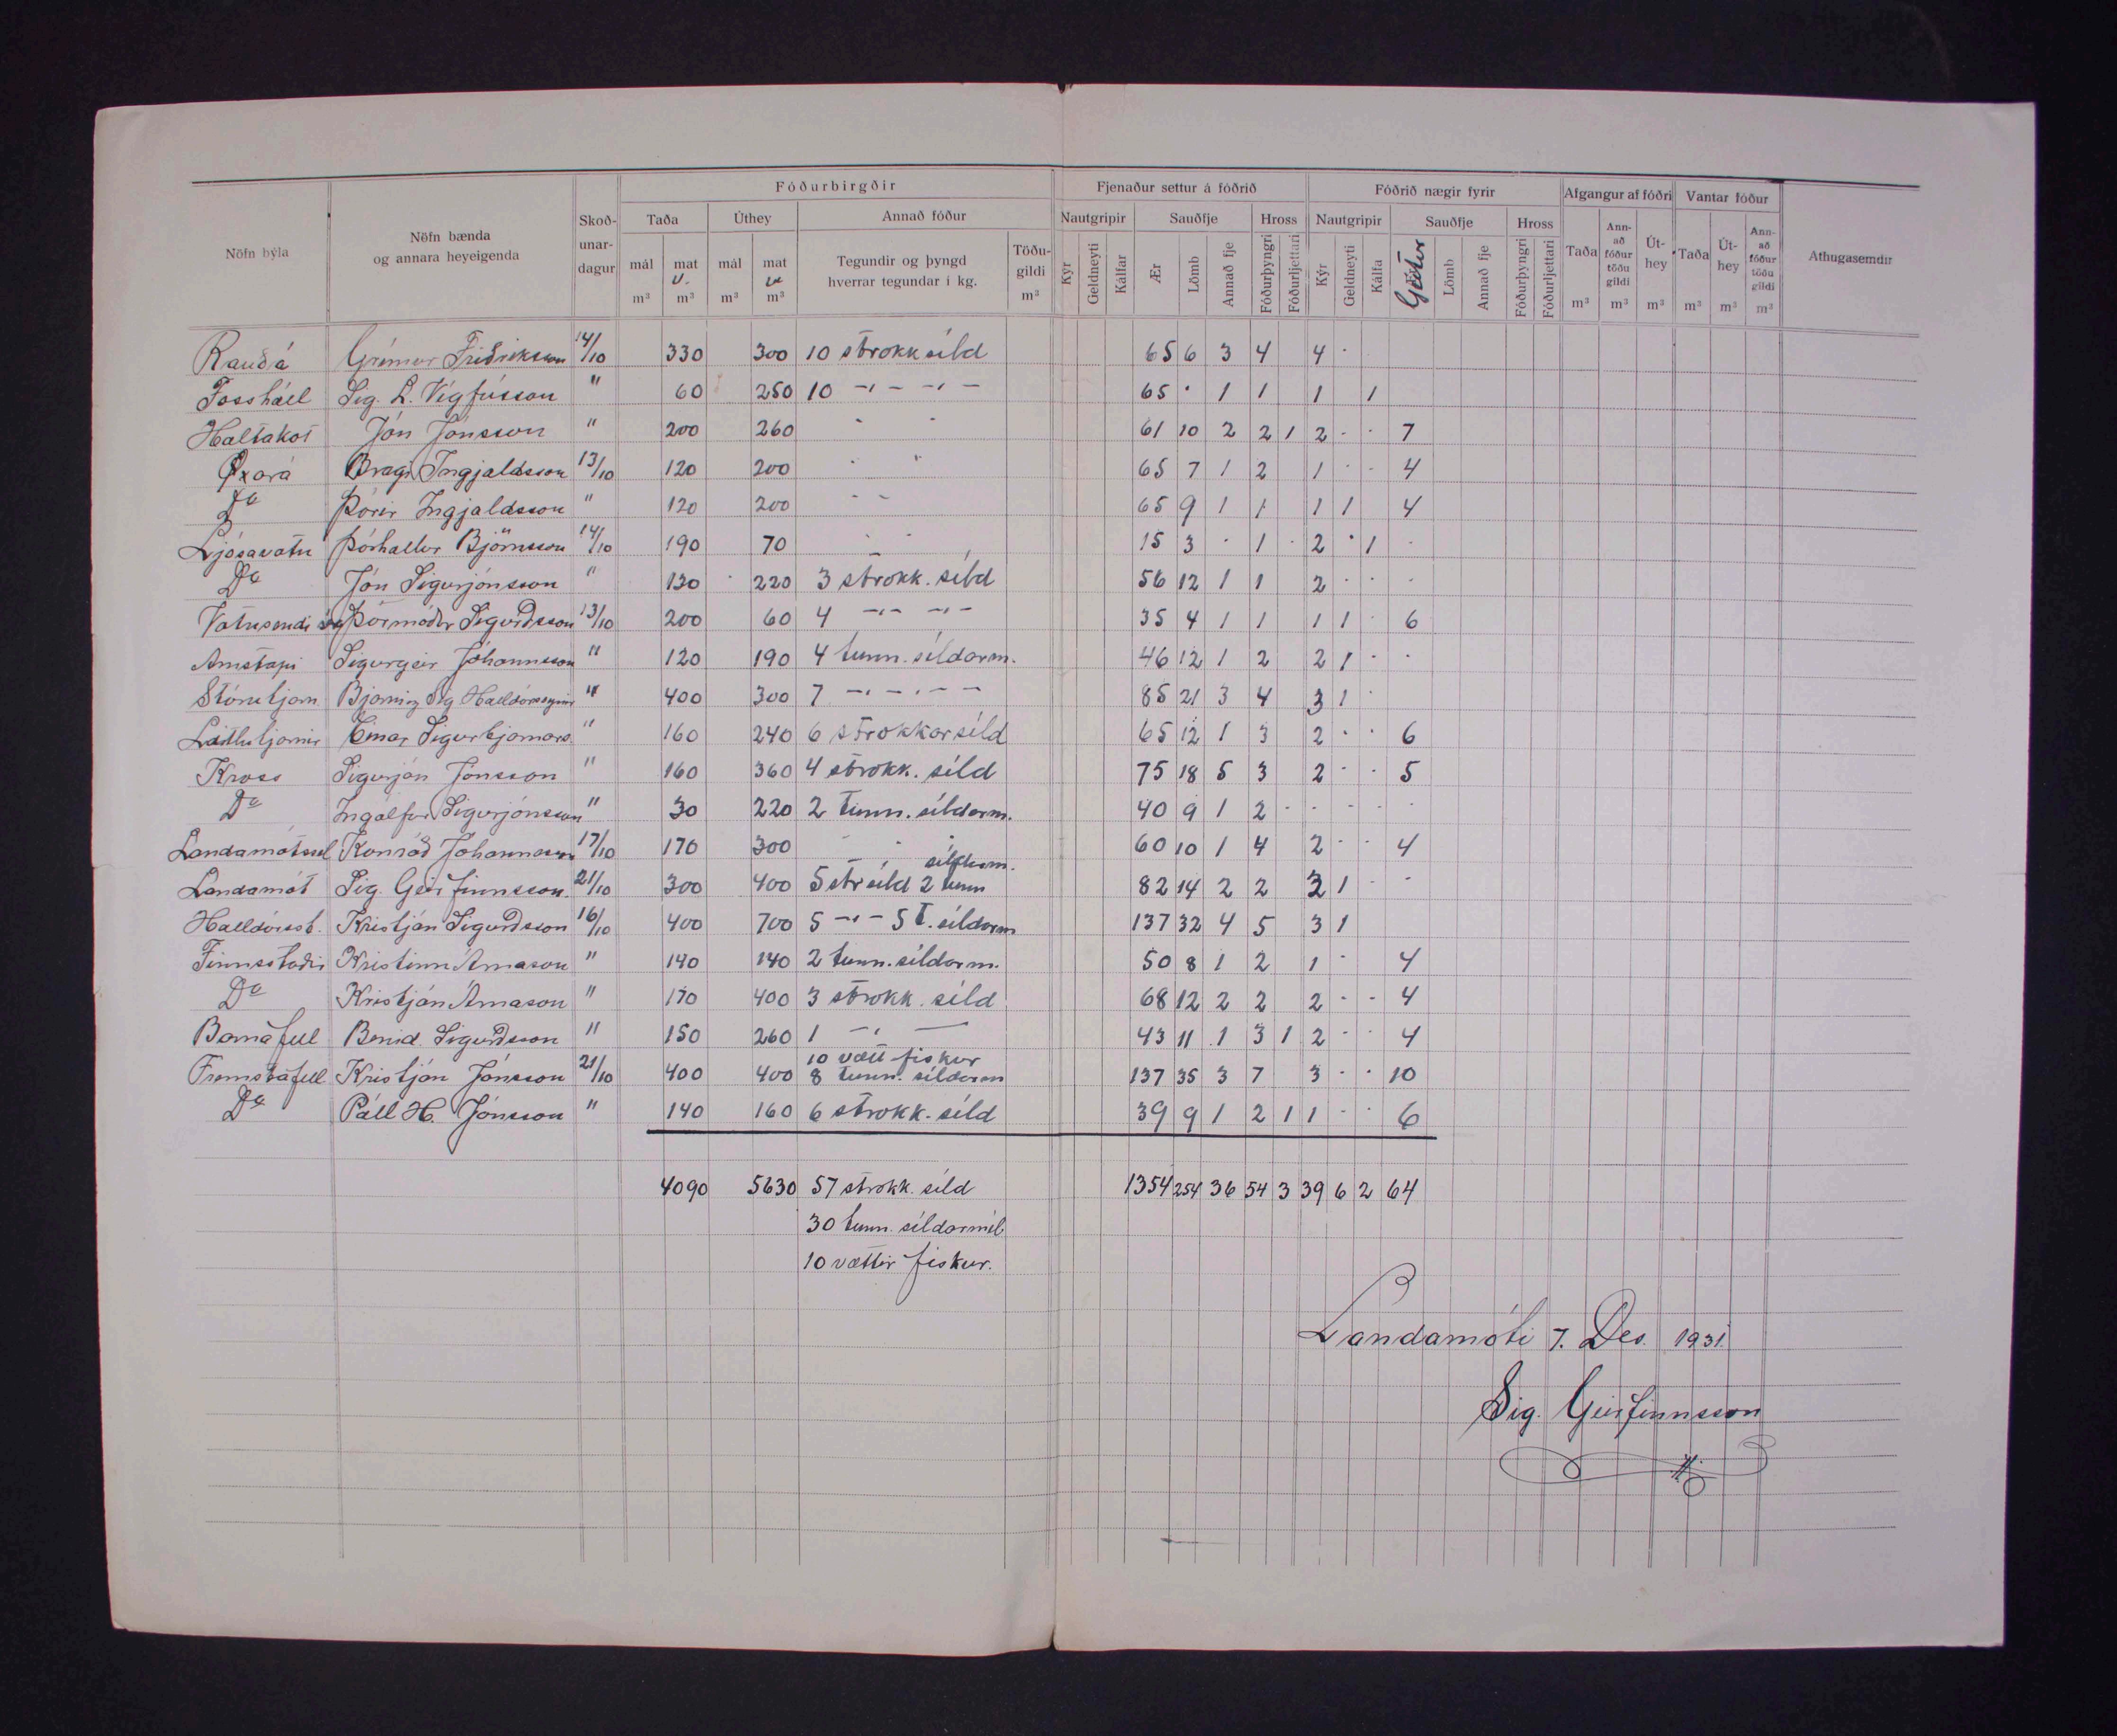 Fóðurbirgðir Fjenaður settur á fóðrið Fóðrið nægir fyrir Afgangur af fóðri Vantar fóður
Nöfn býla Nöfn bænda og annara heyeigenda Skoð-unar-dagur Taða Úthey Annað fóður Nautgripir Sauðfje Hross Nautgripir Sauðfje Hross Taða Ann-að fóður töðu gildi Út-hey Taða Út-hey Ann-að fóður töðu gildi Athugasemdir
mál mat mál mat Tegundir og þyngd hverrar tegundar í kg. Töðu-gildi Kýr Geldneyti Kálfar Ær Lömb Annað fje Fóðurþyngri Fóðurljettari Kýr Geldneyti Kálfa Geitur Lömb Annað fje Fóðurþyngri Fóðurljettari
m³ m³ m³ m³ m³ m³ m³ m³ m³ m³ m³
Rauðá Grímur Friðriksson 14/10 330 300 10 strokk síld 65 6 3 4 4 -
Fosshóll Sig. L. Vigfússon " 60 250 10 -"- -"- 65 · 1 1 1 1
Holtakot Jón Jónsson " 200 260 - - 61 10 2 2 1 2 - - 7
Öxará Bragi Ingjaldsson 13/10 120 200 - " 65 7 1 2 1 - - 4
Do Þórir Ingjaldsson " 120 200 - - 65 9 1 1 1 1 4
Ljósavatn Þórhallur Björnsson 14/10 190 70 - - 15 3 · 1 · 2 · 1 -
Do Jón Sigurjónsson " 130 · 220 3 strokk. síld 56 12 1 1 2 - - -
Vatnsendi Þormóður Sigurðsson 13/10 200 60 4 -"- -"- 35 4 1 1 1 1 · 6
Arnstapi Sigurgeir Jóhannsson " 120 190 4 tunn. síldarm. 46 12 1 2 2 1 - -
Stórutjarn. Bjarni og Sig Halldórssynir " 400 300 7 -"- -"- 85 21 3 4 3 1 -
Litlutjarnir Einar Sigurbjarnars. " 160 240 6 strokkar síld 65 12 1 3 2 - - 6
Kross Sigurjón Jónsson " 160 360 4 strokk. síld 75 18 5 3 2 - - 5
Do Ingólfur Sigurjónsson " 30 220 2 tunn. síldarm. 40 9 1 2 - - - - -
Landamótssel Konráð Jóhannsson 17/10 170 300 - - 60 10 1 4 2 - - 4
Landamót Sig. Geirfinnsson. 21/10 300 400 5 str síld 2 tunn síldarm. 82 14 2 2 3 1 - -
Halldórsst. Kristján Sigurðsson 16/10 400 700 5 -"- 5 t. síldarm 137 32 4 5 3 1
Finnsstaðir Kristinn Árnason " 140 140 2 tunn. síldarm. 50 8 1 2 1 - 4
Do Kristján Árnason " 170 400 3 strokk. síld 68 12 2 2 2 - - 4
Barnafell Benid. Sigurðsson " 150 260 1 -"- — 43 11 1 3 1 2 - - 4
Fremstafell Kristján Jónsson 21/10 400 400 10 vætt fiskur 8 tunn. síldarm 137 35 3 7 3 - - 10
Do Páll H. Jónsson " 140 160 6 strokk. síld 39 9 1 2 1 1 - - 6
4090 5630 57 strokk. síld 1354 254 36 54 3 39 6 2 64
30 tunn. síldarmél
10 vættir fiskur.
Landamóti 7. Des. 1931.
Sig. Geirfinnsson